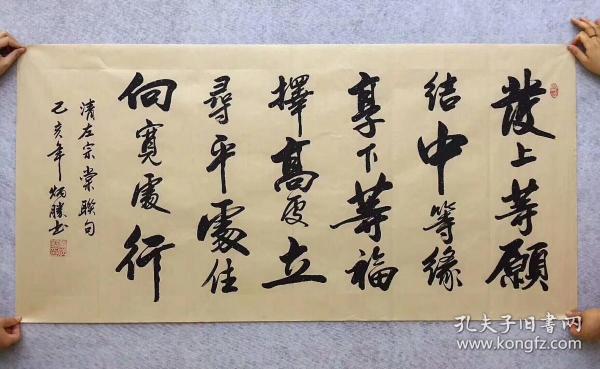 發上等願
结中等緣
享下等福
擇高處立
尋平處住
向寬處行
清左宗棠聯句
己亥年炳勝书
孔夫子旧書网
www.kongfz.com